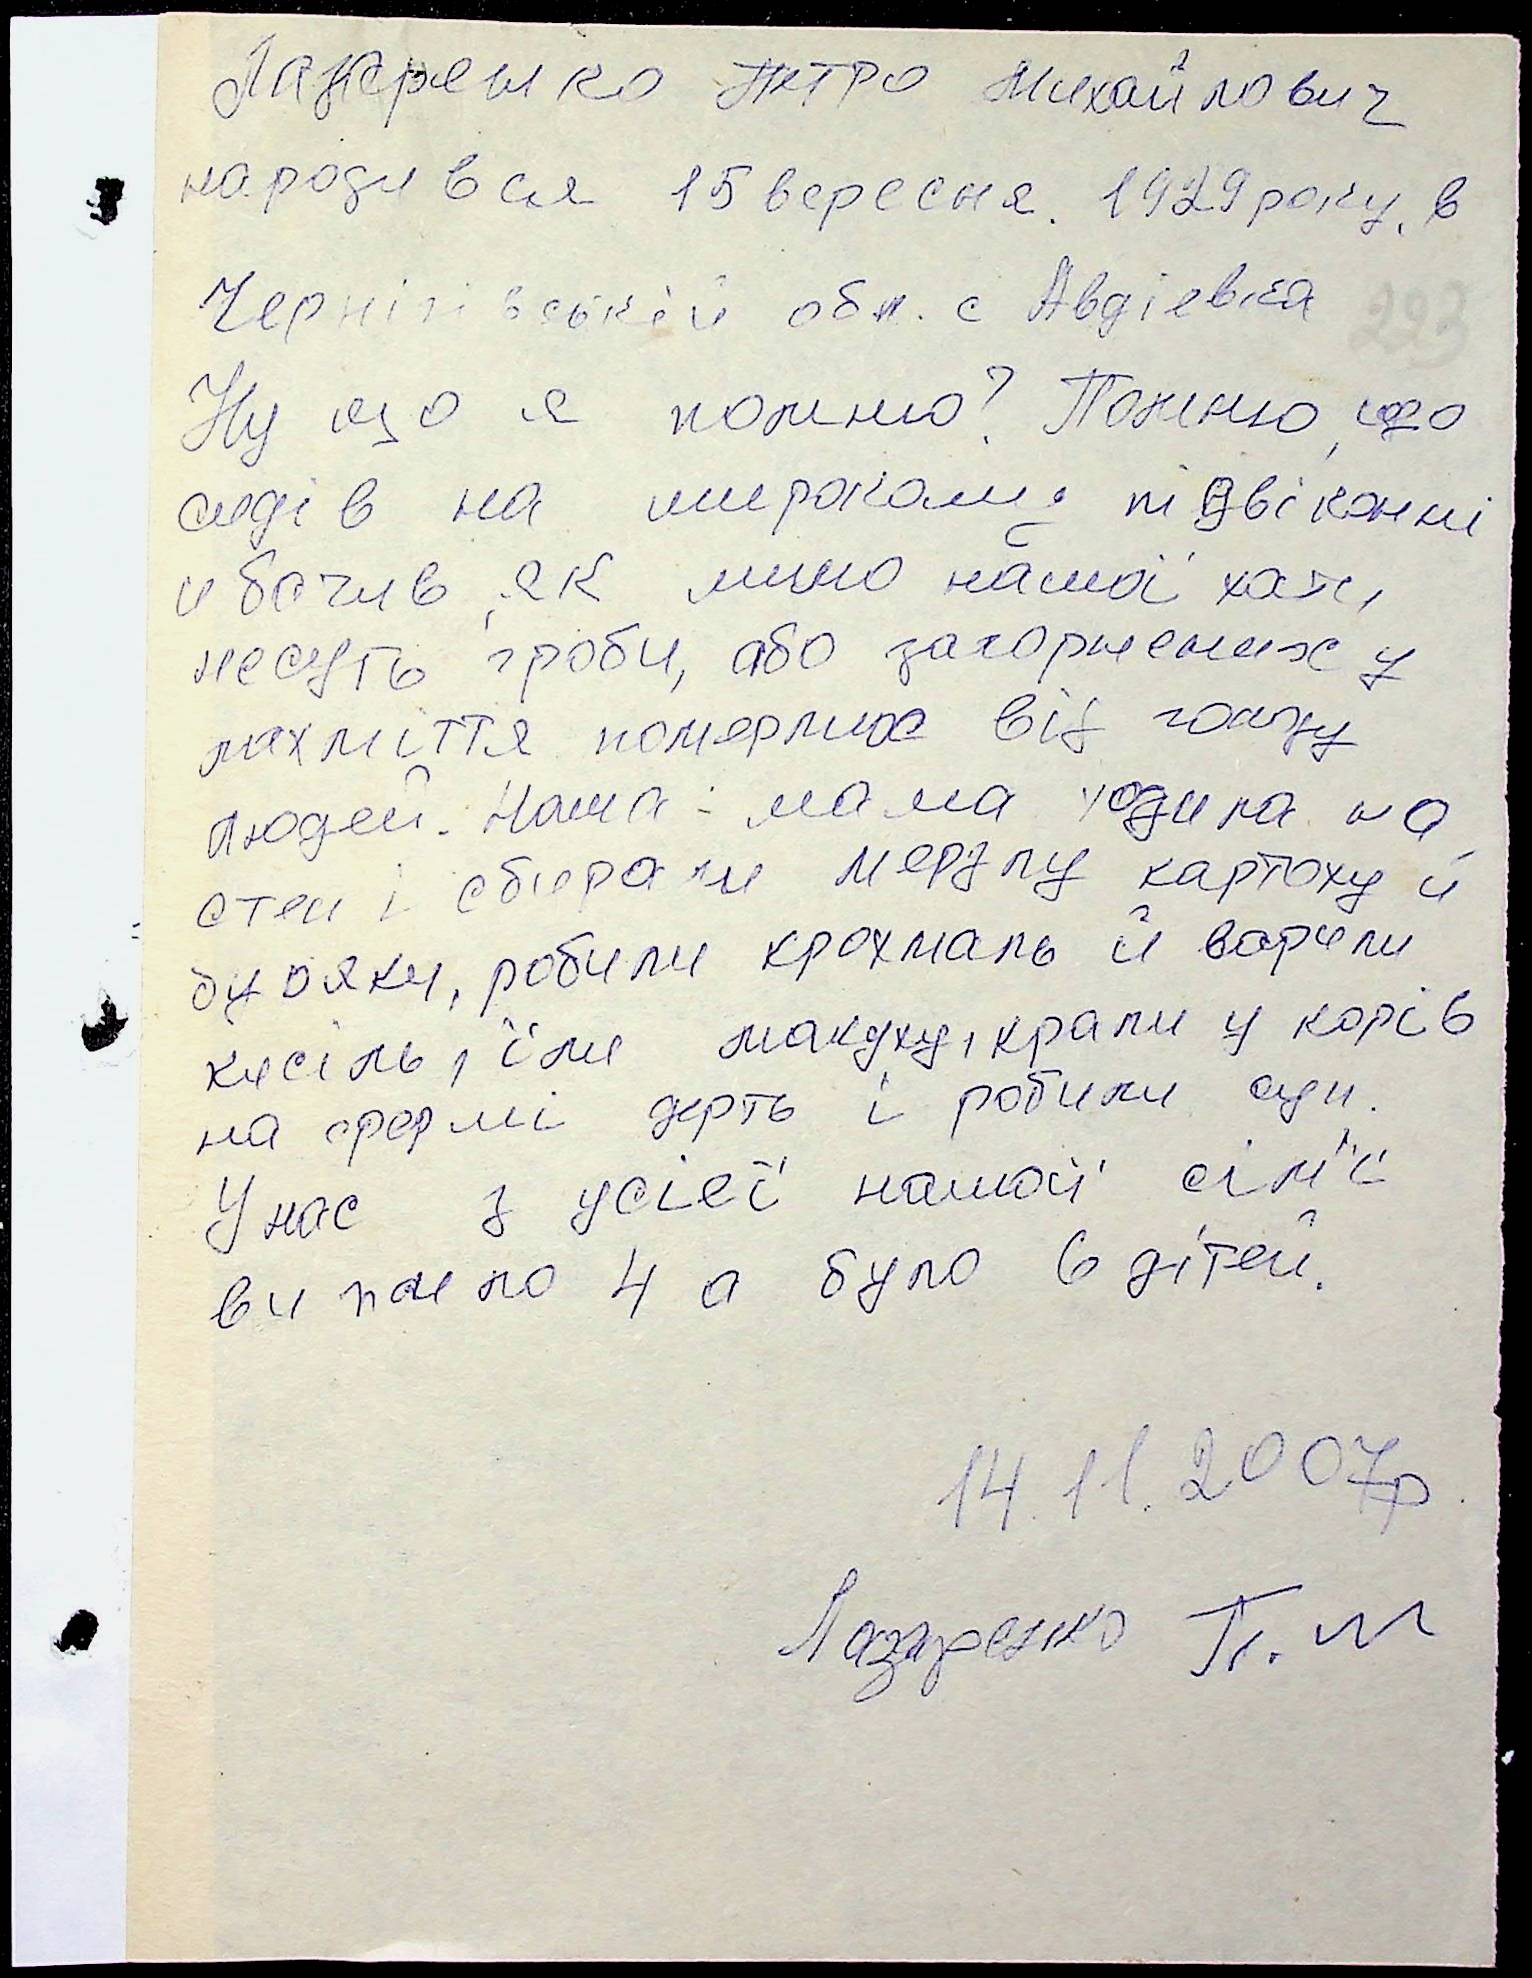 Лазаренко Петро Михайлович
народився 15 вересня. 1929 року. в
Чернігівській обл. с Авдіевка
293
Ну що я помню? Помню, що
сидів на широкому підвіконні
и бачив, як мимо нашої хати,
несуть гроби, або загорнених у
лахміття померлих від голоду
людей. Наша мама ходила на
степ і сбирали мерзлу картоху й
буряки, робили крохмаль й варили
кисіль, їли макуху, крали у корів
на фермі дерть і робили суп.
У нас з усієї нашой сім'ї
вижило 4 а було 6 дітей.
14.11.2007р.
Лазаренко П. М